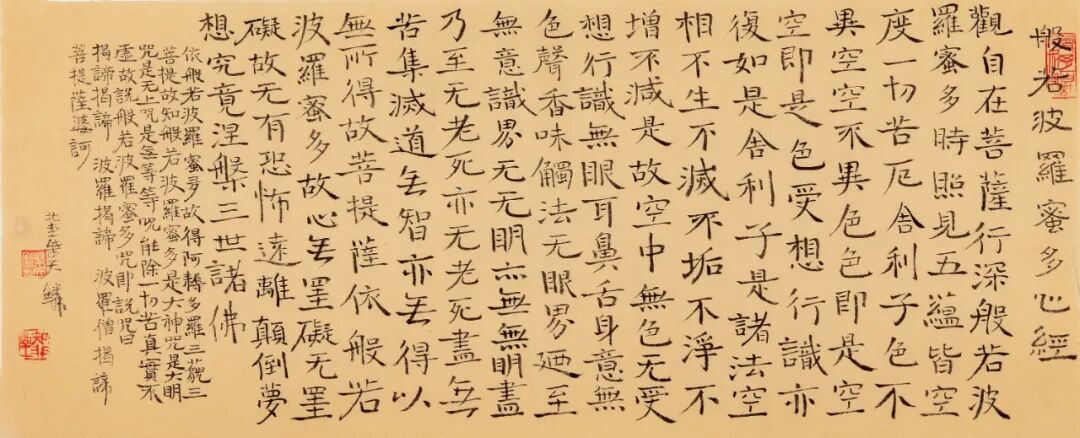 般若波羅蜜多心經
觀自在菩薩行深般若波
羅蜜多時照見五蘊皆空
度一切苦厄舍利子色不
異空空不異色色即是空
空即是色受想行識亦
復如是舍利子是諸法空
相不生不滅不垢不淨不
增不減是故空中無色无受
想行識無眼耳鼻舌身意無
色聲香味觸法无眼界廼至
無意識界无无明亦無無明盡
乃至无老死亦无老死盡無
苦集滅道无智亦无得以
無所得故菩提薩依般若
波羅蜜多故心无罣礙无罣
礙故无有恐怖遠離顛倒夢
想究竟涅槃三世諸佛
依般若波羅蜜多故得阿耨多羅三藐三
菩提故知般若波羅蜜多是大神咒是大明
咒是无上咒是無等等咒能除一切苦真實不
虛故說般若波羅蜜多咒即說咒曰
揭諦揭諦 波羅揭諦 波羅僧揭諦
菩提薩婆訶